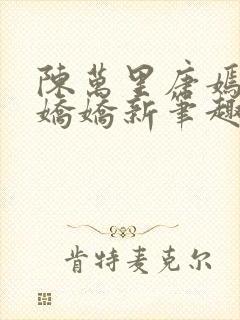 陳萬里唐嫣
嬌嬌新筆趣
肯特麦克尔